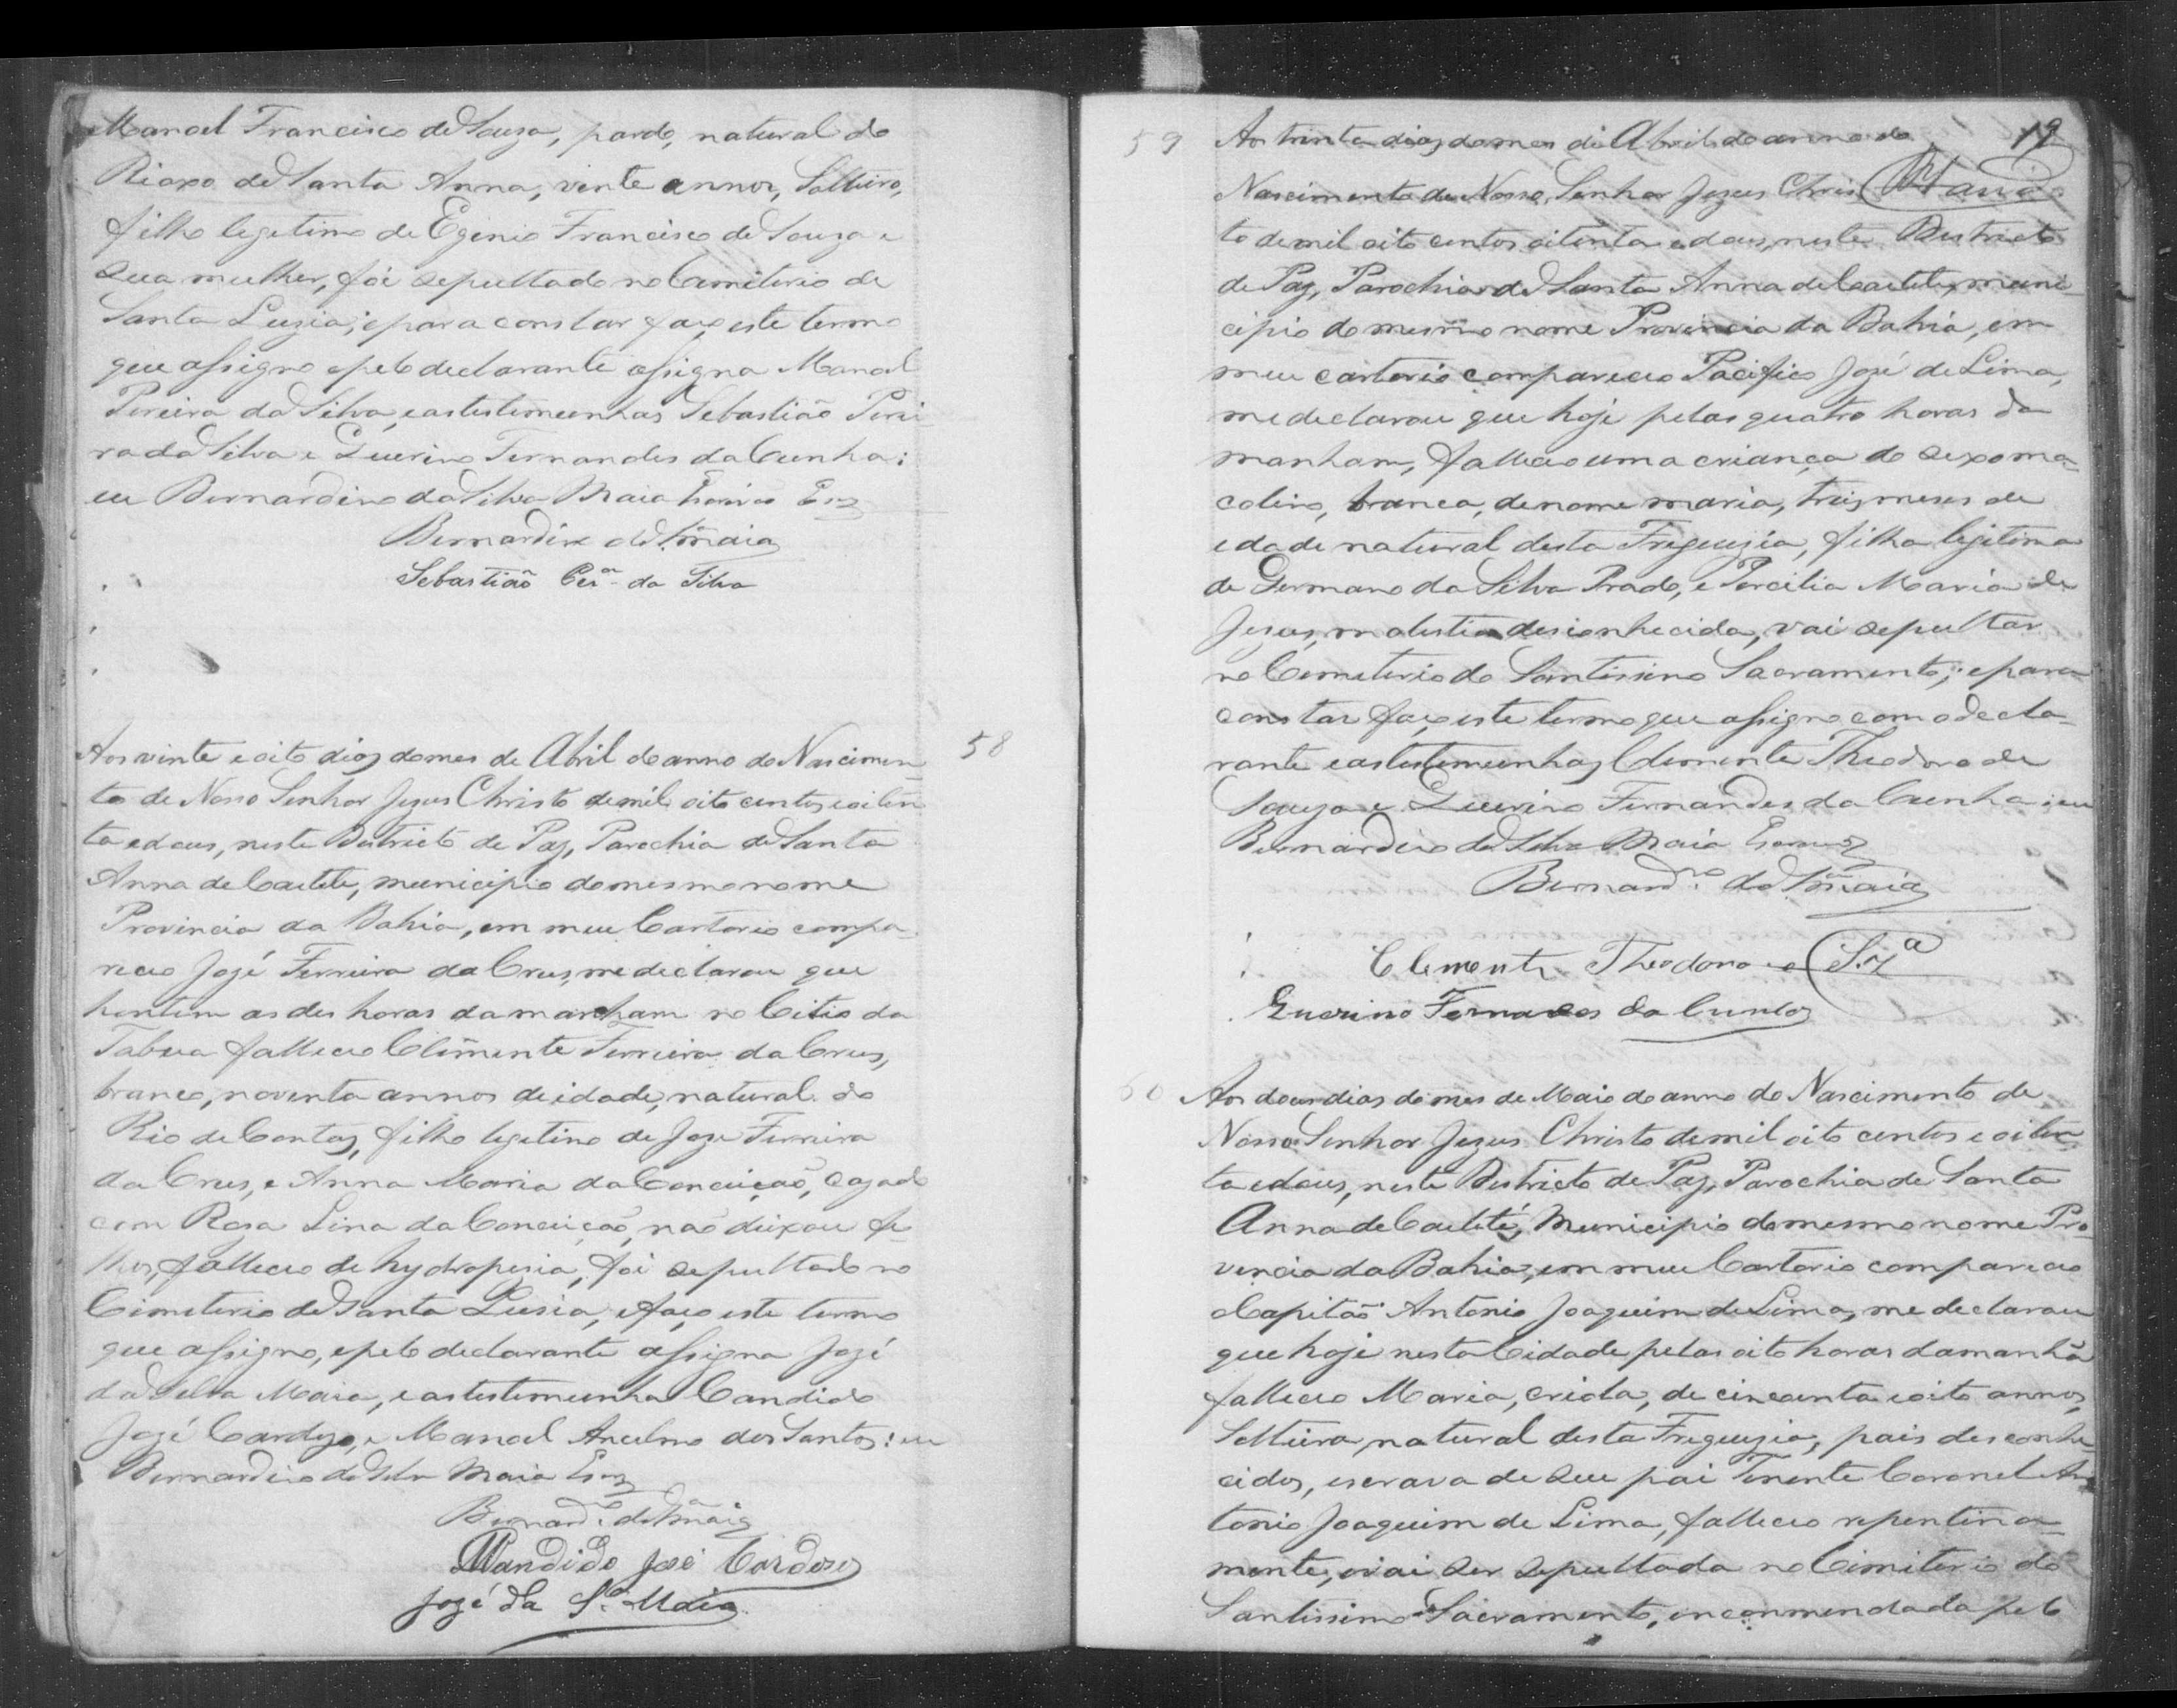 Manoel Francisco de Souza, pardo, natural do
Riaxo de Santa Anna, vinte annos, Solteiro,
filho legetimo de Eginio Francisco de Souza e
sua mulher, foi sepultado no Cemiterio de
Santa Luzia; e para constar faço este termo
que assigno e pelo declarante assigna Manoel
Pereira da Silva, e as testemunhas Sebastião Perei
ra da Silva e Querino Fernandes da Cunha:
eu Bernardino da Silva Maia Escrivão Esc
Bernardino da S.ª Maia
Sebastião Per.ª da Silva
58
Aos vinte e oito dias do mes de Abril do anno do Nascimen
to de Nosso Senhor Jezus Christo de mil oito centos e oiten
ta e dous, neste Destricto de Paz, Parochia de Santa
Anna de Caeteté, municipio do mesmo nome
Provincia da Bahia, em meu Cartorio compa
receo Jozé Ferreira da Crus, me declarou que
hontem as des horas da manham no Citio da
Tabua falleceo Clemente Ferreira da Crus,
branco, noventa annos de idade, natural do
Rio de Contas, filho legetimo de Joze Ferreira
da Crus, e Anna Maria da Conceição, cazado
com Rosa Lina da Conceição, não deixou fi
lhos, falleceo de hydropesia, foi sepultado no
Cimeterio de Santa Lusia, e faço este termo
que assigno, e pelo declarante assigna Jozé
da Silva Maia, e as testemunha Candido
Jozé Cardozo, e Manoel Ancelmo dos Santos: eu
Bernardino da Silva Maia Esc
Bernard.º da S.ª Maia
Candido José Cardoso
Jozé da S.ª Maia
19
59 Aos trinta dias do mes de Abril do anno do
Nascimento de Nosso Senhor Jezus Chris
to de mil oito centos oitenta e dous, neste Destricto
de Paz, Parochia de Santa Anna de Caeteté, muni
cipio do mesmo nome Provincia da Bahia, em
meu cartorio compareceo Pacifico José de Lima,
me declarou que hoje pelas quatro horas da
manham, falleceo uma criança do sexo mas
colino, branca, de nome maria, tres meses de
edade natural desta Freguezia, filha legitima
de Germano da Silva Prado, e Porcilia Maria de
Jesus, molestia desconhecida, vai sepultar
no Cemeterio do Santissimo Sacramento; e para
constar faço este termo que assigno com o decla
rante e as testemunhas Clemente Theodoro de
Souza e Querino Fernandes da Cunha: eu
Bernardino da Silva Maia Escrivão
Bernard.º da S.ª Maia
Clemente Theodoro e S.zª
Querino Fernandes da Cunha
60 Aos dous dias do mes de Maio do anno do Nascimento de
Nosso Senhor Jezus Christo de mil oito centos e oiten
ta e dous, neste Destricto de Paz, Parochia de Santa
Anna de Caeteté, Municipio do mesmo nome Pro
vencia da Bahia, em meu Cartorio compareceo
o Capitão Antonio Joaquim de Lima, me declarou
que hoje nesta Cidade pelas oito horas da manhã
falleceo Maria, criola, de cincoenta e oito annos,
Solteira, natural desta Freguezia, pais desconhe
cidos, escrava de seu pai Tenente Coronel An
tonio Joaquim de Lima, falleceo repentina
mente, e vai ser sepultada no Cimiterio do
Santissimo Sacramento, encommendada pelo